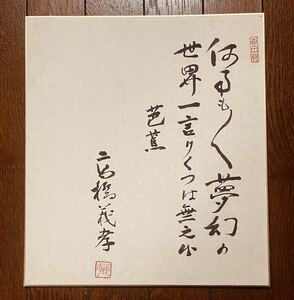 何事も〳〵夢幻の
世界一言りくつは無之候
芭蕉
高橋義孝